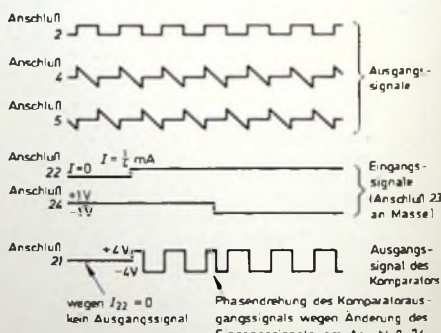 Anschluß
2
Anschluß
4
Anschluß
5
Ausgangs-
signale
Anschluß
22 I=0 I = ¼ mA
Anschluß
24 +1V
-1V
Eingangs-
signale
(Anschluß 23
an Masse)
Anschluß
21 +4V
-4V
Ausgangs-
signal des
Komparators
wegen I22 = 0
kein Ausgangssignal
Phasendrehung des Komparatoraus-
gangssignals wegen Änderung des